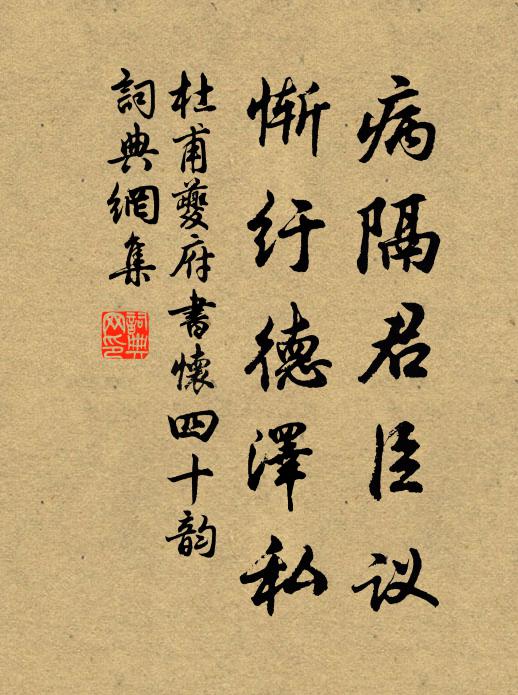 病隔君臣议
惭纡德泽私
杜甫夔府書懷四十韵
詞典網集
詞典网印